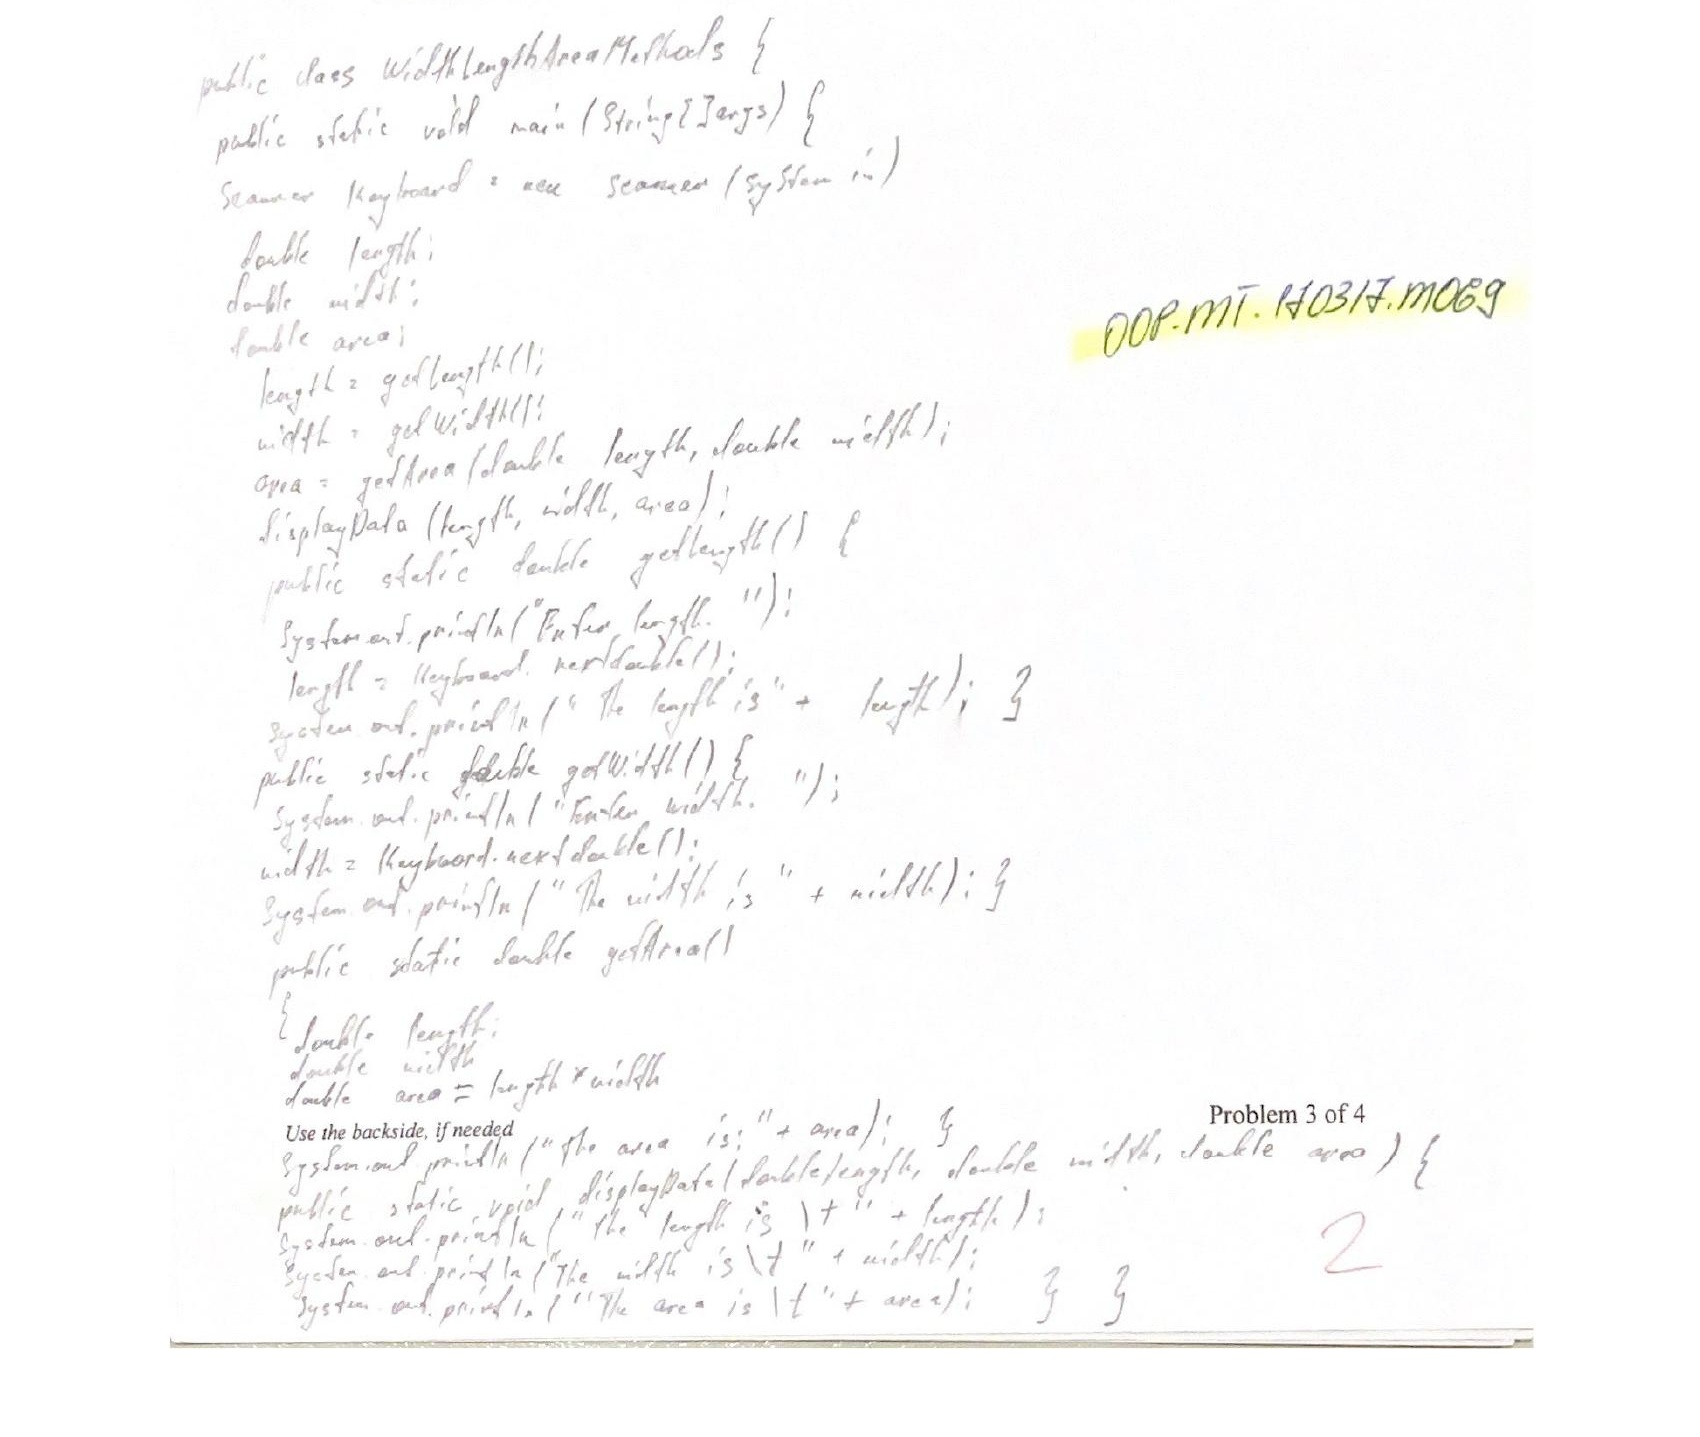 public class WidthLengthAreaMethods {
public static void main (String[] args) {
Scanner Keyboard = new Scanner (System in)
double length;
double width;
double area;
length = getLength();
width = getWidth();
area = getArea (double length, double width);
displayData (length, width, area);
public static double getLength() {
System.out.println("Enter length. ");
length = Keyboard. nextdouble();
System.out.println (" The length is" + length); }
public static double getWidth() {
System.out.println( "Enter width. ");
width = Keyboard.nextdouble();
System.out.println (" The width is " + width); }
public static double getArea()
{
double length;
double width
double area = length * width
OOP.MT.170317.M069
Use the backside, if needed
Problem 3 of 4
System.out println ("The area is:" + area); }
public static void displayData(double length, double width, double area) {
System.out.println (" The length is \t " + length);
System.out.println ("The width is \t " + width);
System.out.println ("The area is \t " + area); } }
2